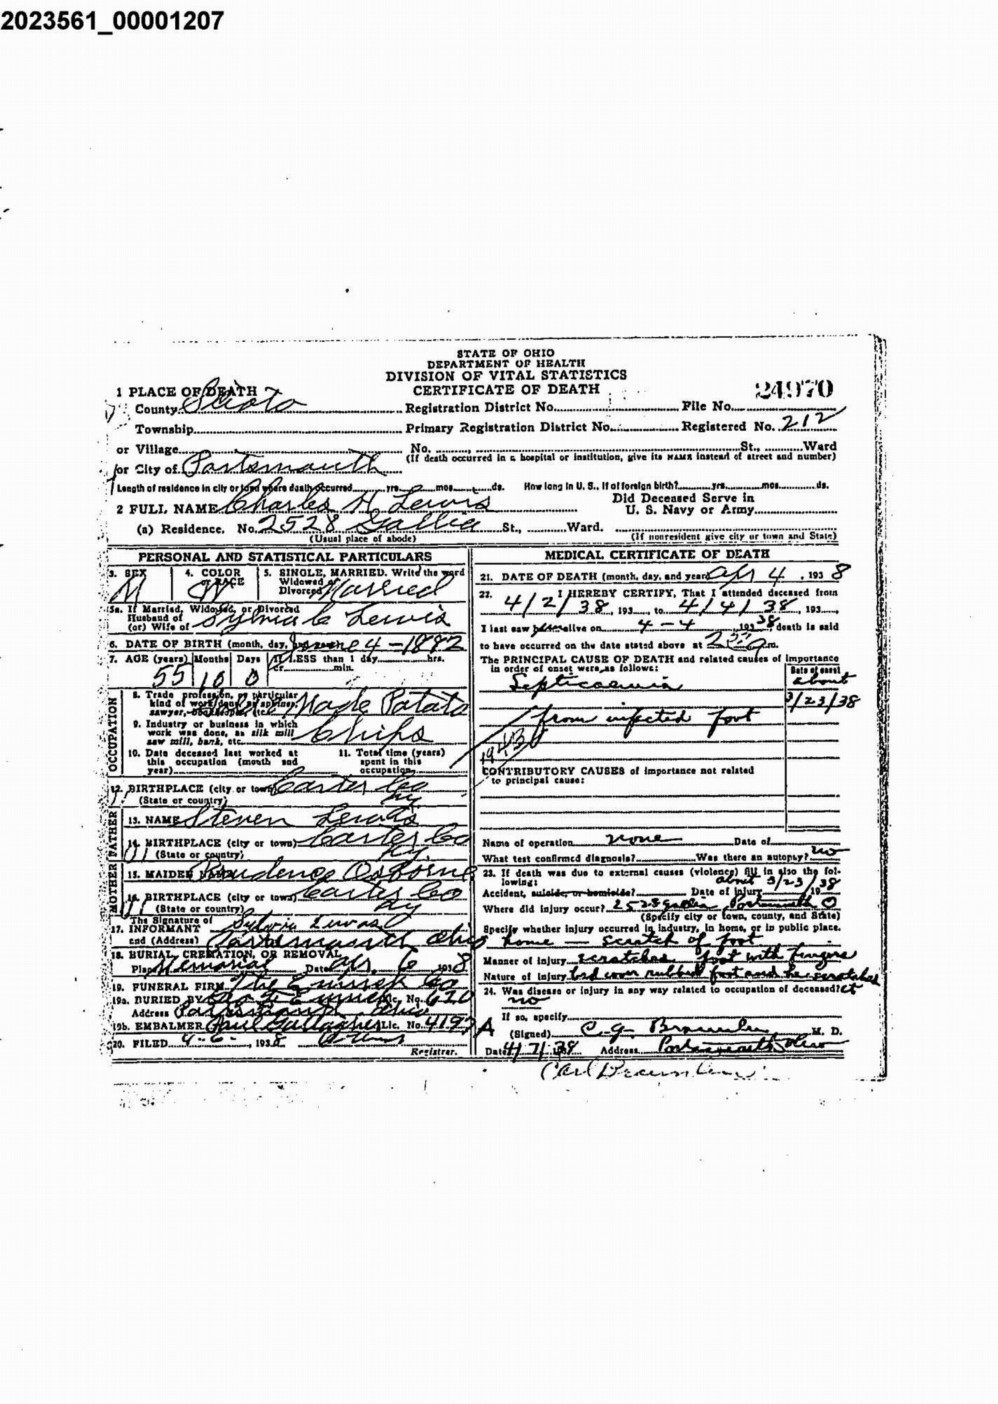 2023561_00001207
STATE OF OHIO
DEPARTMENT OF HEALTH
DIVISION OF VITAL STATISTICS
CERTIFICATE OF DEATH
24970
1 PLACE OF DEATH
County Scioto Registration District No. File No.
Township Primary Registration District No. Registered No. 212
or Village No. St., Ward
(If death occurred in a hospital or institution, give its NAME instead of street and number)
or City of Portsmouth
Length of residence in city or town where death occurred yrs. mos. ds. How long in U. S., if of foreign birth? yrs. mos. ds.
2 FULL NAME Charles H. Lewis Did Deceased Serve in U. S. Navy or Army
(a) Residence. No. 2528 Gallia St., Ward.
(Usual place of abode) (If nonresident give city or town and State)
PERSONAL AND STATISTICAL PARTICULARS
3. SEX M 4. COLOR OR RACE W 5. SINGLE, MARRIED. Write the word Widowed or Divorced Married
5a. If Married, Widowed, or Divorced
Husband of
(or) Wife of Sylvia C Lewis
6. DATE OF BIRTH (month, day, 4-1882
7. AGE (years) Months Days If LESS than 1 day hrs. min.
55 10 0
OCCUPATION
8. Trade profession, or particular kind of work done, as spinner, sawyer, bookkeeper, etc. Made Potato
9. Industry or business in which work was done, as silk mill saw mill, bank, etc. Chips
10. Date deceased last worked at this occupation (month and year)
11. Total time (years) spent in this occupation
12. BIRTHPLACE (city or town) Carter Co
(State or country) Ky
FATHER
13. NAME Steven Lewis
14. BIRTHPLACE (city or town) Carter Co
(State or country) Ky
MOTHER
15. MAIDEN NAME Prudence Osborne
16. BIRTHPLACE (city or town) Carter Co
(State or country) Ky
The Signature of
17. INFORMANT Sylvia Lewas
and (Address) Portsmouth Ohio
18. BURIAL, CREMATION, OR REMOVAL
Place Memorial Date Apr. 6 1938
19. FUNERAL FIRM The Co
19a. BURIED BY Lic. No. 620
Address Portsmouth Ohio
19b. EMBALMER Paul Gallagher Lic. No. 4197A
20. FILED 4-6- 1938
Registrar.
MEDICAL CERTIFICATE OF DEATH
21. DATE OF DEATH (month, day, and year) Apr 4, 1938
22. I HEREBY CERTIFY, That I attended deceased from
4/2/38, 193 to 4/4/38, 193
I last saw alive on 4-4 1938 death is said
to have occurred on the date stated above at m.
The PRINCIPAL CAUSE OF DEATH and related causes of importance
in order of onset were as follows:
Date of onset
Septicaemia about
3/23/38
from infected foot
CONTRIBUTORY CAUSES of importance not related
to principal cause:
Name of operation none Date of
What test confirmed diagnosis? Was there an autopsy? no
23. If death was due to external causes (violence) fill in also the following:
Accident, suicide, or homicide? Date of injury about 3/23/38 193
Where did injury occur? 2528 Gallia, Portsmouth O
(Specify city or town, county, and State)
Specify whether injury occurred in industry, in home, or in public place.
home - scratch of foot
Manner of injury scratched foot with fingers
Nature of injury rubbed foot and he scratched it
24. Was disease or injury in any way related to occupation of deceased?
no
If so, specify
(Signed) C. G. M. D.
Date 4/7/38 Address Portsmouth Ohio
Carl